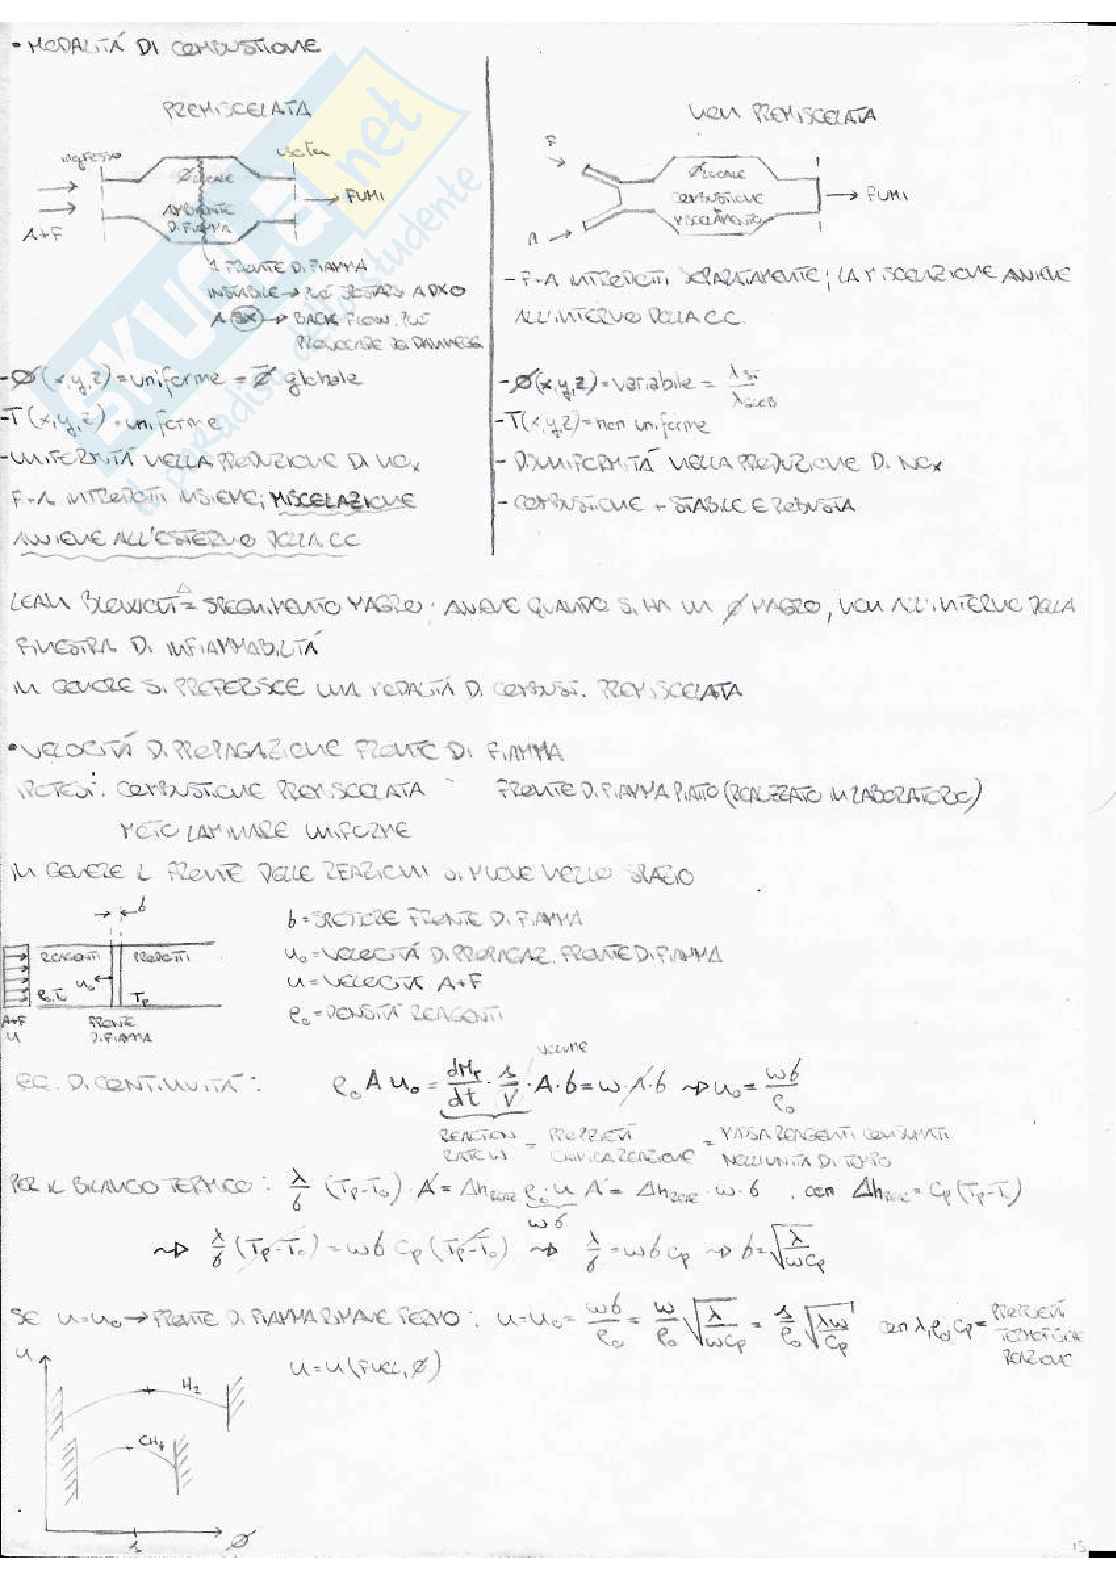 • MODALITÁ DI COMBUSTIONE
PREMISCELATA
ingresso
uscita
Ø LOCALE
AMBIENTE
DI FIAMMA
FUMI
A+F
1 FRONTE DI FIAMMA
INSTABILE → PUÓ SPOSTARSI A DX O
A SX → BACK FLOW: PUÓ
PROVOCARE
- Ø (x,y,z) = uniforme = Ø globale
- T (x,y,z) = uniforme
- UNIFORMITÁ NELLA PRODUZIONE DI NOx
F-A INTRODOTTI INSIEME; MISCELAZIONE
AVVIENE ALL'ESTERNO DELLA CC
NON PREMISCELATA
F
Ø LOCALE
COMBUSTIONE
+
MISCELAMENTO
FUMI
A
- F-A INTRODOTTI SEPARATAMENTE; LA MISCELAZIONE AVVIENE
ALL'INTERNO DELLA C.C.
- Ø (x,y,z) = variabile =
- T (x,y,z) = non uniforme
- DISUNIFORMITÁ NELLA PRODUZIONE DI NOx
- COMBUSTIONE + STABILE E ROBUSTA
LEAN BLOWOUT = SPEGNIMENTO MAGRO: AVVIENE QUANDO SI HA UN Ø MAGRO, NON ALL'INTERNO DELLA
FINESTRA DI INFIAMMABILITÁ
IN GENERE SI PREFERISCE UNA MODALITÁ DI COMBUST. PREMISCELATA
• VELOCITÁ DI PROPAGAZIONE FRONTE DI FIAMMA
IPOTESI: COMBUSTIONE PREMISCELATA FRONTE DI FIAMMA PIATTO (REALIZZATO IN LABORATORIO)
MOTO LAMINARE UNIFORME
IN GENERE IL FRONTE DELLE REAZIONI SI MUOVE NELLO SPAZIO
δ
REAGENTI
PRODOTTI
u₀
ρ₀ T₀
Tp
A+F
u
FRONTE
DI FIAMMA
δ = SPESSORE FRONTE DI FIAMMA
u₀ = VELOCITÁ DI PROPAGAZ. FRONTE DI FIAMMA
u = VELOCITÁ A+F
ρ₀ = DENSITÁ REAGENTI
VOLUME
EQ. DI CONTINUITÁ: ρ₀ A u₀ = dMr/dt · 1/V · A · δ = ω · A · δ ⇝ u₀ = ωδ/ρ₀
REACTION RATE ω = PROPRIETÁ CHIMICA REAZIONE = MASSA REAGENTI CONSUMATI NELL'UNITÁ DI TEMPO
PER IL BILANCIO TERMICO: λ/δ (Tp-T₀) · A = Δh ρ₀ · u A = Δh · ω · δ, con Δh = cp (Tp-T₀)
ωδ
⇝ λ/δ (Tp-T₀) = ωδ cp (Tp-T₀) ⇝ λ/δ = ωδ cp ⇝ δ = √(λ/ωcp)
SE u=u₀ → FRONTE DI FIAMMA RIMANE FERMO: u=u₀ = ωδ/ρ₀ = ω/ρ₀ √(λ/ωcp) = 1/ρ₀ √(λω/cp) con λ, ρ₀, cp = PROPRIETÁ TERMOFISICHE REAZIONE
u = u (FUEL, Ø)
u
H₂
CH₄
1
Ø
15
SKUOLA.net
il paradiso dello studente